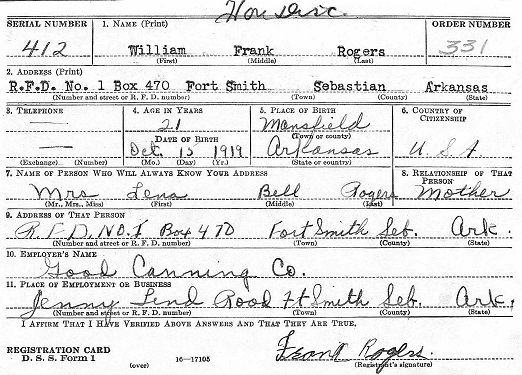 Hon Disc.
SERIAL NUMBER 1. NAME (Print) ORDER NUMBER
412 William Frank Rogers 331
(First) (Middle) (Last)
2. ADDRESS (Print)
R.F.D. No. 1 Box 470 Fort Smith Sebastian Arkansas
(Number and street or R. F. D. number) (Town) (County) (State)
3. TELEPHONE 4. AGE IN YEARS 5. PLACE OF BIRTH 6. COUNTRY OF CITIZENSHIP
21 Mansfield
(Town or county)
DATE OF BIRTH
Oct. 15 1919 Arkansas U. S. A.
(Exchange) (Number) (Mo.) (Day) (Yr.) (State or country)
7. NAME OF PERSON WHO WILL ALWAYS KNOW YOUR ADDRESS 8. RELATIONSHIP OF THAT PERSON
Mrs Lena Bell Rogers Mother
(Mr., Mrs., Miss) (First) (Middle) (Last)
9. ADDRESS OF THAT PERSON
R.F.D. NO. 1 Box 470 Fort Smith Seb. Ark.
(Number and street or R. F. D. number) (Town) (County) (State)
10. EMPLOYER'S NAME
Good Canning Co.
11. PLACE OF EMPLOYMENT OR BUSINESS
Jenny Lind Road Ft Smith Seb. Ark.
(Number and street or R. F. D. number) (Town) (County) (State)
I AFFIRM THAT I HAVE VERIFIED ABOVE ANSWERS AND THAT THEY ARE TRUE.
REGISTRATION CARD
D. S. S. Form 1 (over) 16—17105 Frank Rogers.
(Registrant's signature)